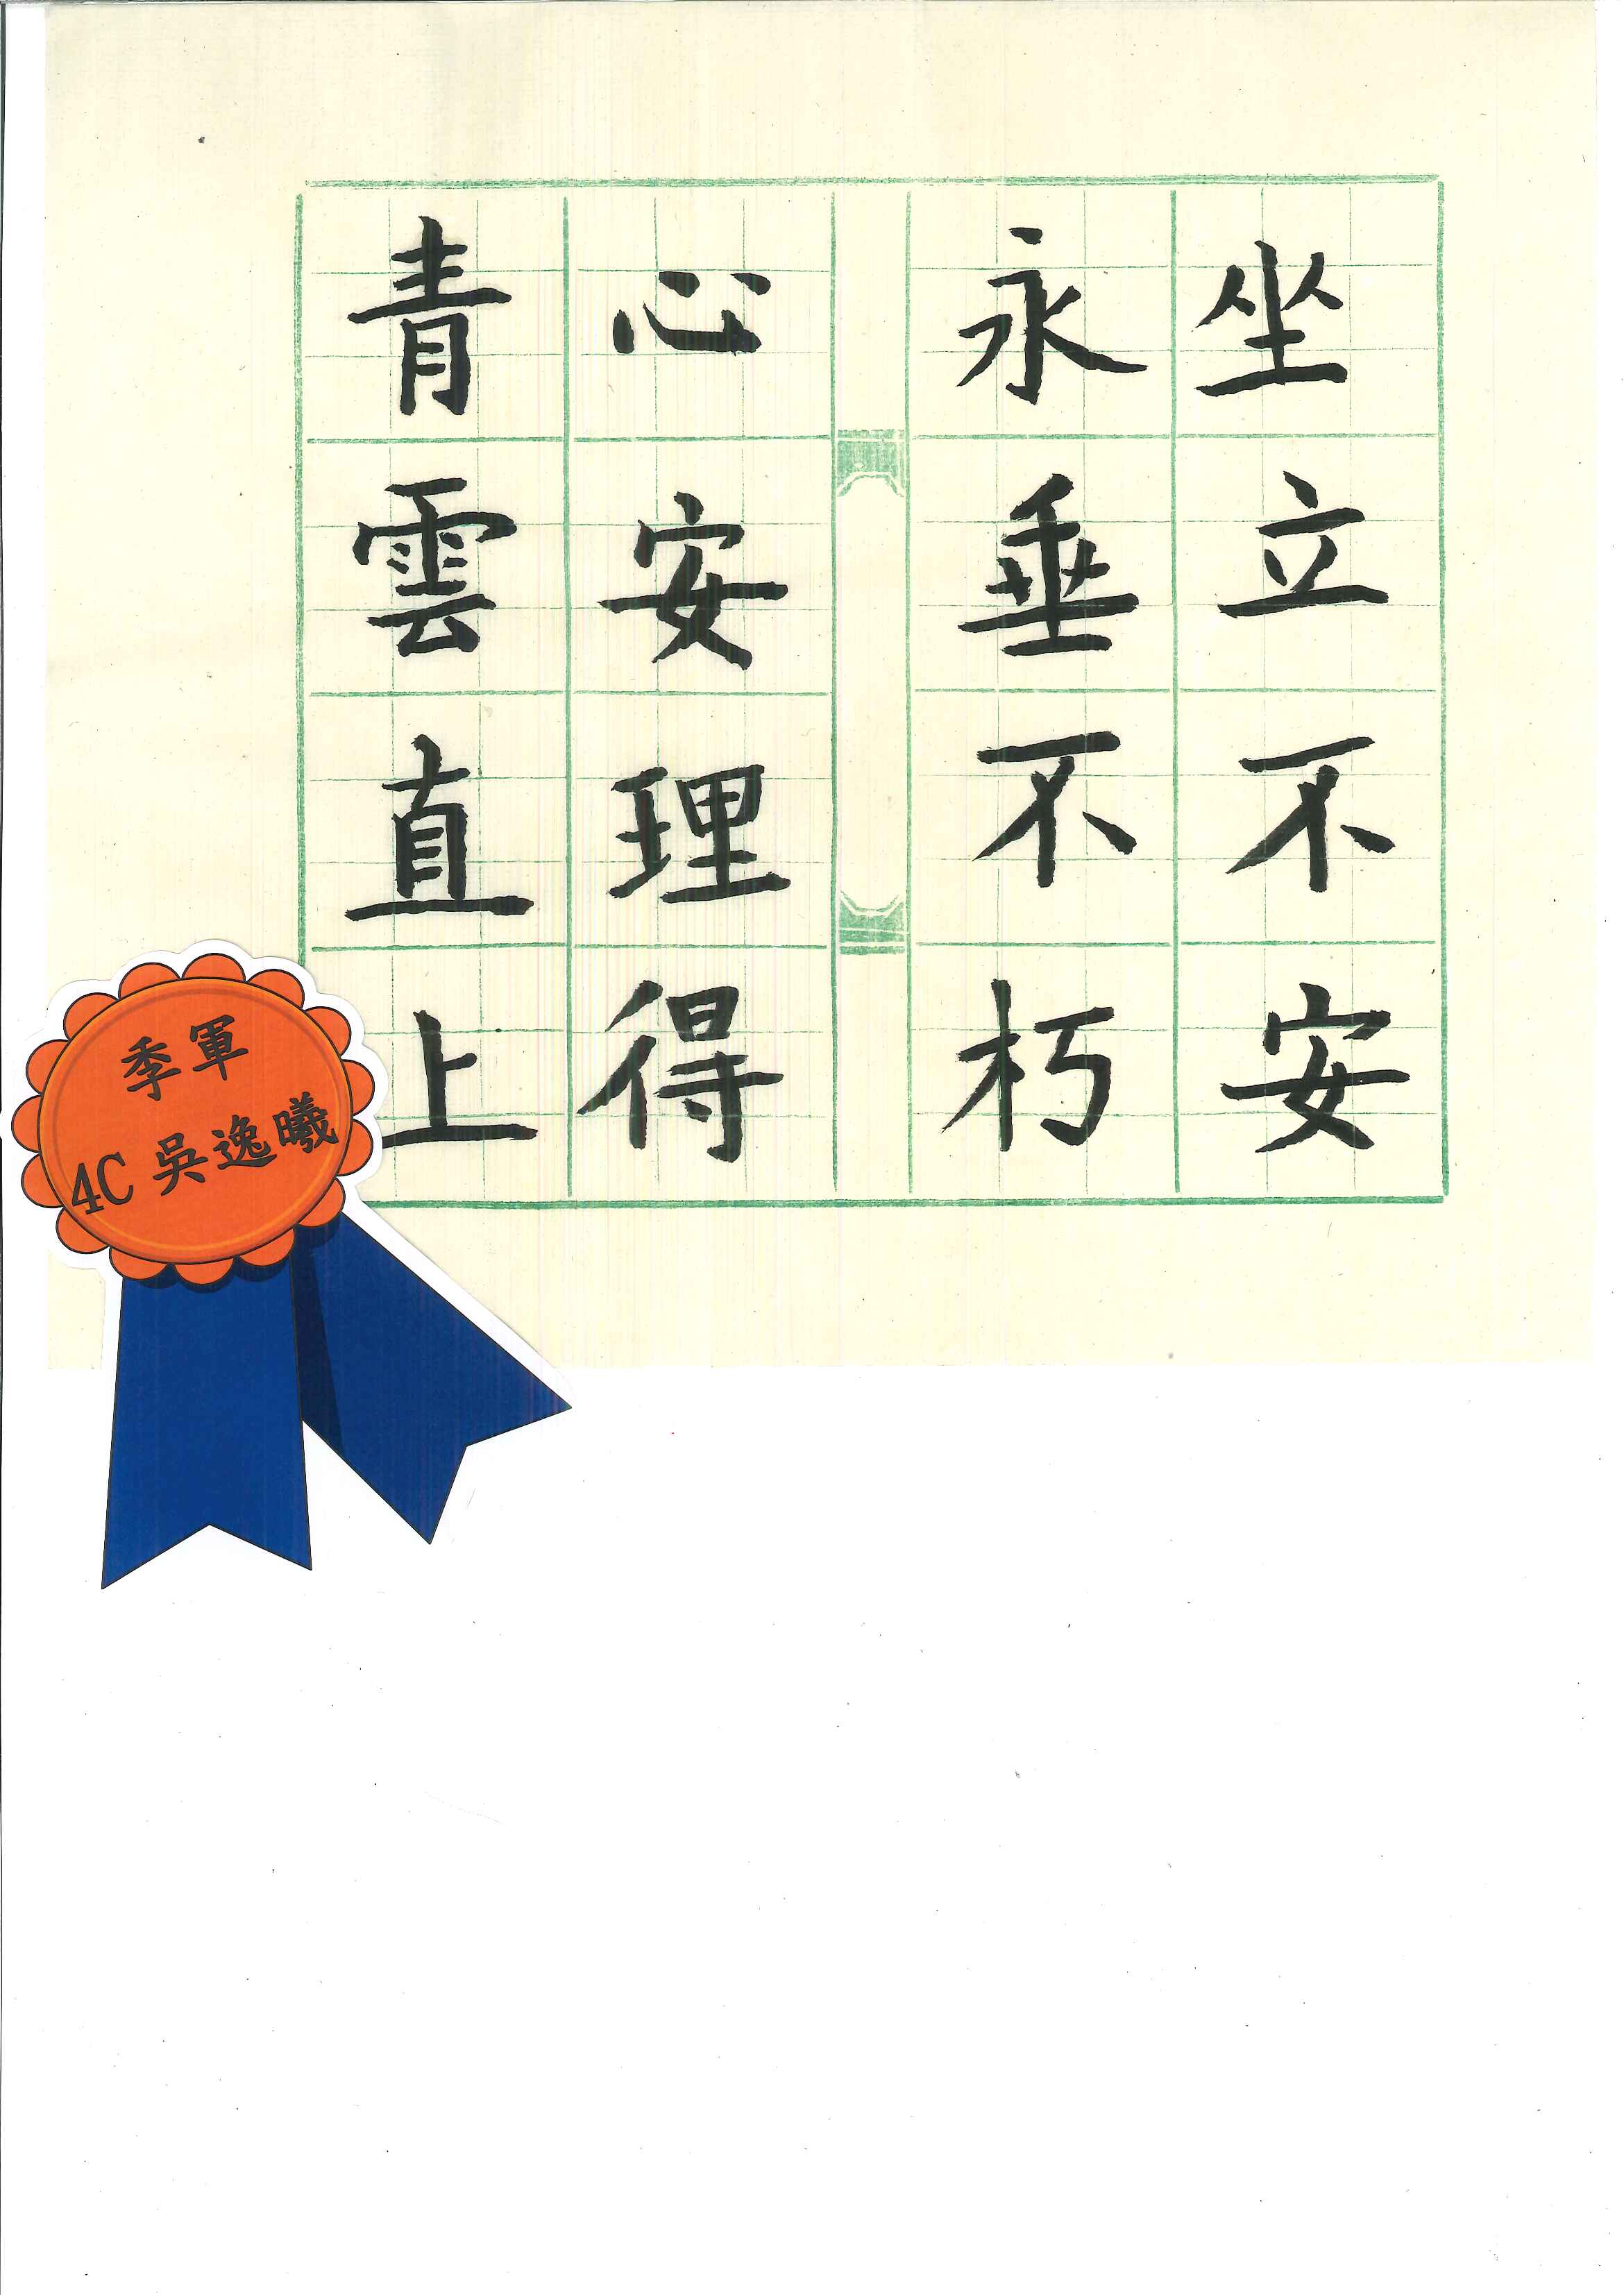 坐立不安
永垂不朽
心安理得
青雲直上
季軍
4C 吳逸曦